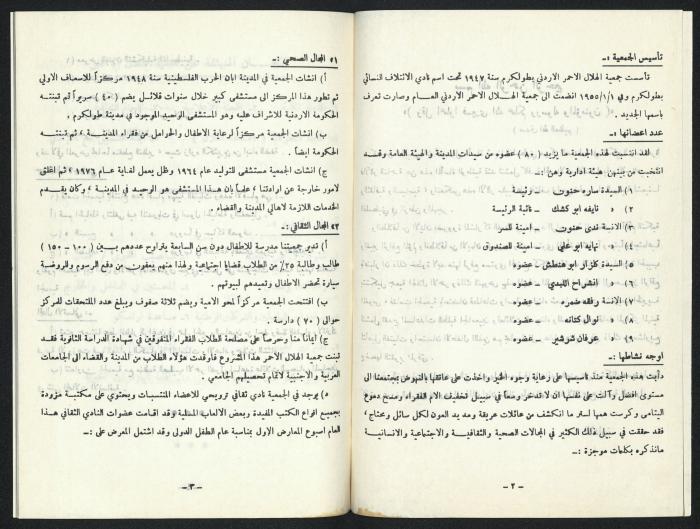 تأسيس الجمعية :ـ
تأسست جمعية الهلال الاحمر الاردني بطولكرم سنة ١٩٤٧ تحت اسم نادي الائتلاف النسائي
بطولكرم وفي ١/١/١٩٥٥ انضمت الى جمعية الهلال الاحمر الاردني العام وصارت تعرف
باسمها الجديد .
عدد اعضائها :ـ
لقد انتسبت لهذه الجمعية ما يزيد (٨٠) عضوه من سيدات المدينة والهيئة العامة وقد
انتخبت من بينهن هيئة ادارية وهن :ـ
١) السيدة ساره حنون ـ رئيسة
٢) « نايفه ابو كشك ـ نائبة الرئيسة
٣) الانسة ندى حنون ـ امينة للسر
٤) « نهايه ابو علي ـ امينة للصندوق
٥) السيدة كلزار ابو هنطش ـ عضوه
٦) « انشراح اللبدي ـ عضوه
٧) الانسة رفقه ـ عضوه
٨) « نوال كتانه ـ عضوه
٩) « عرفات ـ عضوه
اوجه نشاطها :ـ
دأبت هذه الجمعية منذ تأسيسها على رعاية وجوه الخير واخذت على عاتقها بالنهوض بمجتمعنا الى
مستوى افضل وآلت على نفسها ان لا تدخر وسعاً في سبيل تخفيف آلام الفقراء ومسح دموع
اليتامى وكرست همها لستر ما انكشف من عائلات عريقة ومد يد العون لكل سائل ومحتاج ،
فقد حققت في سبيل ذلك الكثير في المجالات الصحية والثقافية والاجتماعية والانسانية
مانذكره بكلمات موجزة :ـ
ـ ٢ ـ
١) المجال الصحي :ـ
أ) انشات الجمعية في المدينة ابان الحرب الفلسطينية سنة ١٩٤٨ مركزاً للاسعاف الاولي
ثم تطور هذا المركز الى مستشفى كبير خلال سنوات قلائل يضم (٤٠) سريراً ثم تبنته
الحكومة الاردنية للاشراف عليه وهو المستشفى الوحيد الموجود في مدينة طولكرم .
ب) انشات الجمعية مركزاً لرعاية الاطفال والحوامل من فقراء المدينة ، ثم تبنته
الحكومة ايضاً .
ج) انشات الجمعية مستشفى للتوليد عام ١٩٦٤ وظل يعمل لغاية عام ١٩٧٦ ، ثم اغلق
لامور خارجة عن ارادتنا ، علماً بان هذا المستشفى هو الوحيد في المدينة ، وكان يقدم
الخدمات اللازمة لاهالي المدينة والقضاء .
٢) المجال الثقافي :ـ
أ) تدير جمعيتنا مدرسة للاطفال دون سن السابعة يتراوح عددهم بين (١٠٠ ـ ١٥٠)
طالب وطالبة ٣٥٪ من الطلاب قضايا اجتماعية ولهذا منهم يعفون من دفع الرسوم والروضة
سيارة تحضر الاطفال وتعيدهم لبيوتهم .
ب) افتتحت الجمعية مركزاً لمحو الامية ويضم ثلاثة صفوف ويبلغ عدد الملتحقات للمركز
حوالى (٧٠) دارسة .
ج) ايماناً منا وحرصاً على مصلحة الطلاب الفقراء المتفوقين في شهادة الدراسة الثانوية فقد
تبنت جمعية الهلال الاحمر هذا المشروع فأرفدت هؤلاء الطلاب من المدينة والقضاء الى الجامعات
العربية والاجنبية لاتمام تحصيلهم الجامعي .
د) يوجد في الجمعية نادي ثقافي ترويحي للاعضاء المنتسبات ويحتوي على مكتبة مزودة
بجميع انواع الكتب المفيدة وبعض الالعاب المسلية وقد اقامت عضوات النادي الثقافي هذا
العام اسبوع المعارض الاول بمناسبة عام الطفل الدولى وقد اشتمل المعرض على :ـ
ـ ٣ ـ